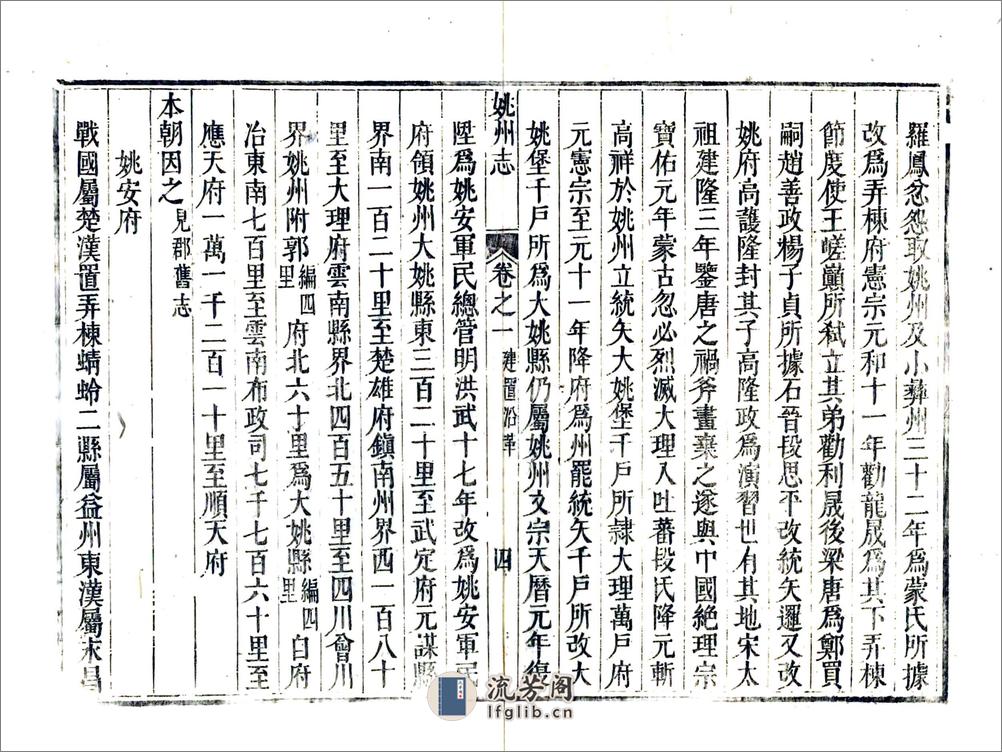 羅鳳忿怨取姚州及小彝州三十二年爲蒙氏所據
改爲弄棟府憲宗元和十一年勸龍晟爲其下弄棟
節度使王嵯巔所弒立其弟勸利晟後梁唐爲鄭買
嗣趙善政楊子貞所據石晉段思平改統矢邏又改
姚府高護隆封其子高隆政爲演習世有其地宋太
祖建隆三年鑒唐之禍斧畫棄之遂與中國絶理宗
寶佑元年蒙古忽必烈滅大理入吐蕃段氏降元斬
高祥於姚州立統矢大姚堡千戸所隷大理萬戸府
元憲宗至元十一年降府爲州罷統矢千戸所改大
姚堡千戸所爲大姚縣仍屬姚州文宗天曆元年復
姚州志 卷之一 建置沿革 四
陞爲姚安軍民總管明洪武十七年改爲姚安軍民
府領姚州大姚縣東三百二十里至武定府元謀縣
界南一百二十里至楚雄府鎮南州界西一百八十
里至大理府雲南縣界北四百五十里至四川會川
界姚州附郭編四里府北六十里爲大姚縣編四里自府
治東南七百里至雲南布政司七千七百六十里至
應天府一萬一千二百一十里至順天府
本朝因之見郡舊志
姚安府
戰國屬楚漢置弄棟蜻蛉二縣屬益州東漢屬永昌
流芳阁
lfglib.cn